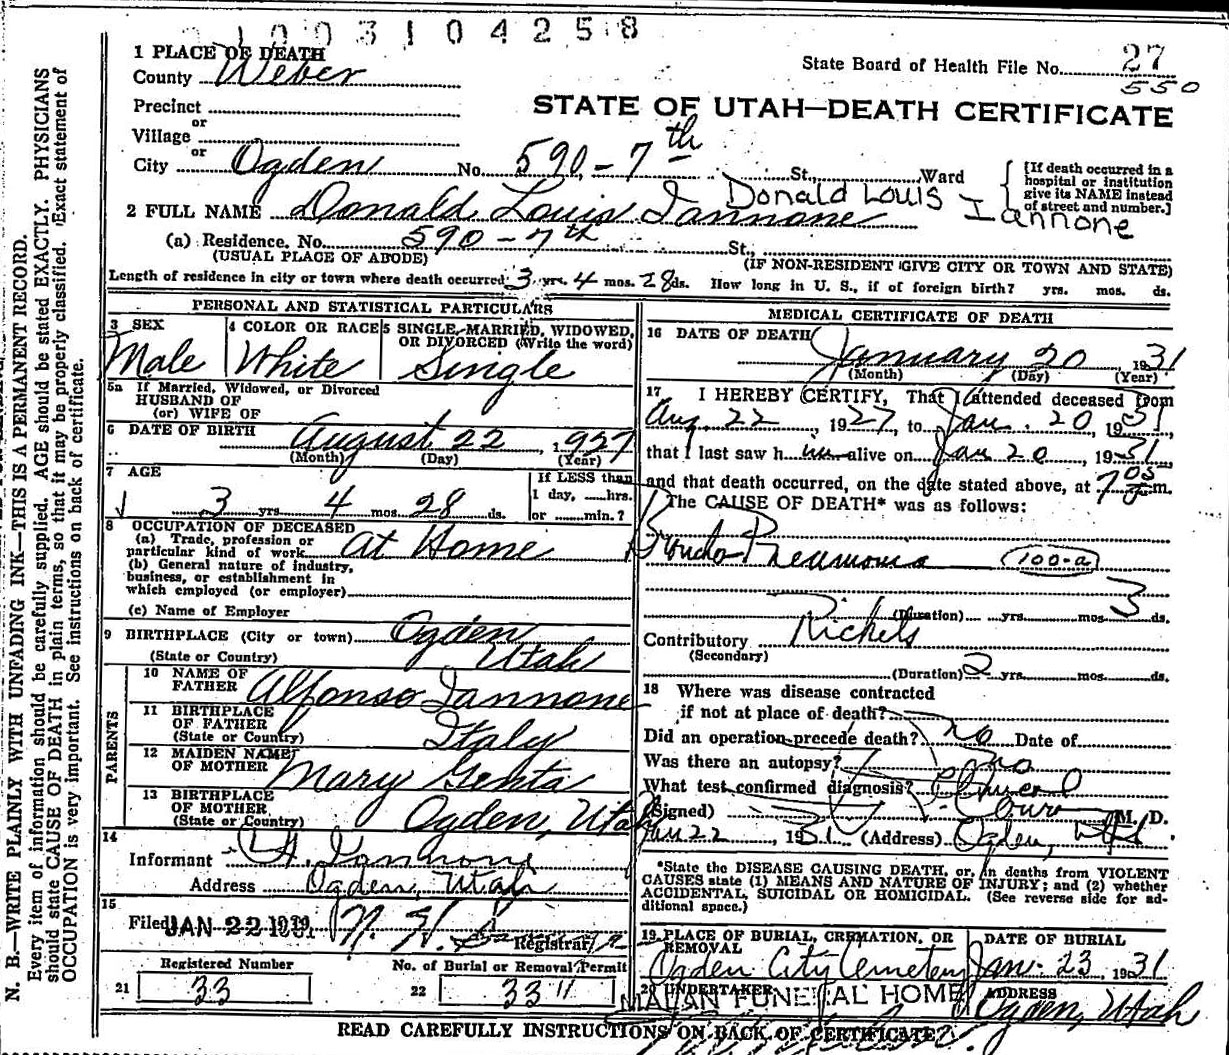 1003104258
1 PLACE OF DEATH
County Weber
State Board of Health File No. 27
550
Precinct
or
Village
or
STATE OF UTAH—DEATH CERTIFICATE
City Ogden No. 590-7th St., Ward
[If death occurred in a hospital or institution give its NAME instead of street and number.]
Donald Louis Iannone
2 FULL NAME Donald Louis Iannone
(a) Residence. No. 590-7th St.,
(USUAL PLACE OF ABODE) (IF NON-RESIDENT GIVE CITY OR TOWN AND STATE)
Length of residence in city or town where death occurred 3 yrs. 4 mos. 28 ds. How long in U. S., if of foreign birth? yrs. mos. ds.
PERSONAL AND STATISTICAL PARTICULARS
3 SEX
Male
4 COLOR OR RACE
White
5 SINGLE, MARRIED, WIDOWED, OR DIVORCED (Write the word)
Single
5a If Married, Widowed, or Divorced
HUSBAND OF
(or) WIFE OF
6 DATE OF BIRTH August 22, 1927
(Month) (Day) (Year)
7 AGE
3 yrs. 4 mos. 28 ds.
If LESS than
1 day, hrs.
or min.?
8 OCCUPATION OF DECEASED
(a) Trade, profession or
particular kind of work At Home
(b) General nature of industry,
business, or establishment in
which employed (or employer)
(c) Name of Employer
9 BIRTHPLACE (City or town) Ogden
(State or Country) Utah
PARENTS
10 NAME OF FATHER Alfonso Iannone
11 BIRTHPLACE OF FATHER
(State or Country) Italy
12 MAIDEN NAME OF MOTHER Mary Genta
13 BIRTHPLACE OF MOTHER
(State or Country) Ogden, Utah
14
Informant Iannone
Address Ogden, Utah
15
Filed JAN 22 1931 Registrar
Registered Number
21 33
No. of Burial or Removal Permit
22 33
MEDICAL CERTIFICATE OF DEATH
16 DATE OF DEATH January 20 1931
(Month) (Day) (Year)
17 I HEREBY CERTIFY, That I attended deceased from
Aug. 22, 1927, to Jan. 20, 1931,
that I last saw him alive on Jan 20, 1931,
and that death occurred, on the date stated above, at 705 m.
The CAUSE OF DEATH* was as follows:
Broncho Pneumonia 100-a
(Duration) yrs. mos. 3 ds.
Contributory Rickets
(Secondary)
(Duration) 2 yrs. mos. ds.
18 Where was disease contracted
if not at place of death?
Did an operation precede death? No Date of
Was there an autopsy? No
What test confirmed diagnosis? Clinical
(Signed) M. D.
Jan 22, 1931 (Address) Ogden, Utah
*State the DISEASE CAUSING DEATH, or, in deaths from VIOLENT
CAUSES state (1) MEANS AND NATURE OF INJURY; and (2) whether
ACCIDENTAL, SUICIDAL OR HOMICIDAL. (See reverse side for ad-
ditional space.)
19 PLACE OF BURIAL, CREMATION, OR REMOVAL
Ogden City Cemetery
DATE OF BURIAL
Jan. 23, 1931
20 UNDERTAKER
MALAN FUNERAL HOME
ADDRESS
Ogden, Utah
READ CAREFULLY INSTRUCTIONS ON BACK OF CERTIFICATE
N. B.—WRITE PLAINLY WITH UNFADING INK—THIS IS A PERMANENT RECORD.
Every item of information should be carefully supplied. AGE should be stated EXACTLY. PHYSICIANS
should state CAUSE OF DEATH in plain terms, so that it may be properly classified. Exact statement of
OCCUPATION is very important. See instructions on back of certificate.